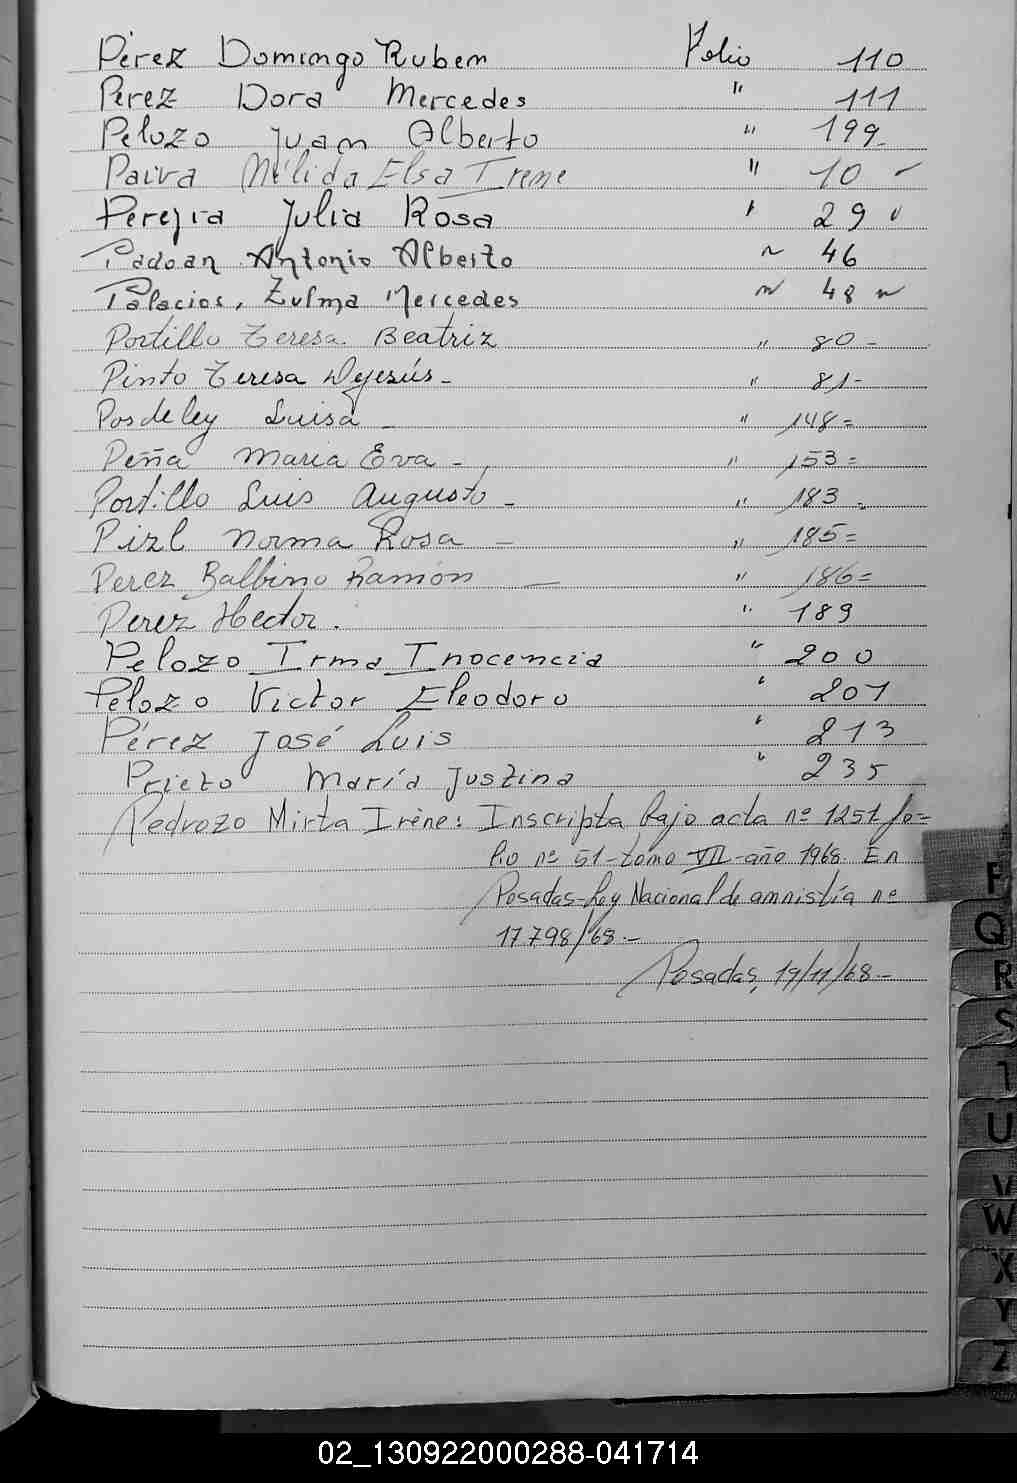 Pérez Domingo Ruben Folio 110
Perez Dora Mercedes " 111
Pelozo Juan Alberto " 199
Paiva Nélida Elsa Irene " 10 -
Pereira Julia Rosa " 29 "
Padoan Antonio Alberto " 46
Palacios, Zulma Mercedes " 48 "
Portillo Teresa Beatriz " 80 -
Pinto Teresa Dejesús - " 81 -
Posdeley Luisa - " 148 =
Peña Maria Eva - " 153 =
Portillo Luis Augusto - " 183 -
Pizl Norma Rosa - " 185 =
Perez Balbino Ramón - " 186 =
Perez Hector. " 189
Pelozo Irma Inocencia " 200
Pelozo Victor Eleodoro " 201
Pérez José Luis " 213
Prieto María Justina " 235
Pedrozo Mirta Irene: Inscripta bajo acta nº 1251 fo=
lio nº 51 - tomo VII - año 1968. En
Posadas - Ley Nacional de amnistía nº
17798/68.-
Posadas, 19/11/68 -
P
Q
R
S
T
U
V
W
X
Y
Z
02_130922000288-041714